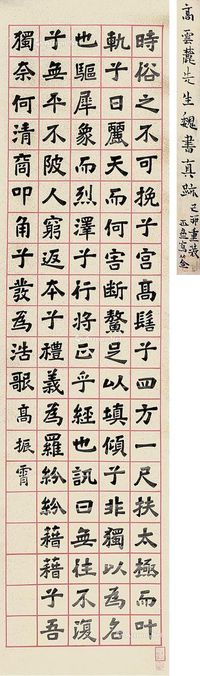 高雲麓先生魏書真跡
己卯重裝
時俗之不可挽兮宮髙髻兮四方一尺扶太極而叶
軌兮日麗天而何害断鰲足以填傾兮非獨以為名
也驅犀象而烈澤兮行将正乎經也訊曰無往不復
兮無平不陂人窮返本兮禮義為羅紛紛藉藉兮吾
獨奈何清商叩角兮發為浩歌高振霄